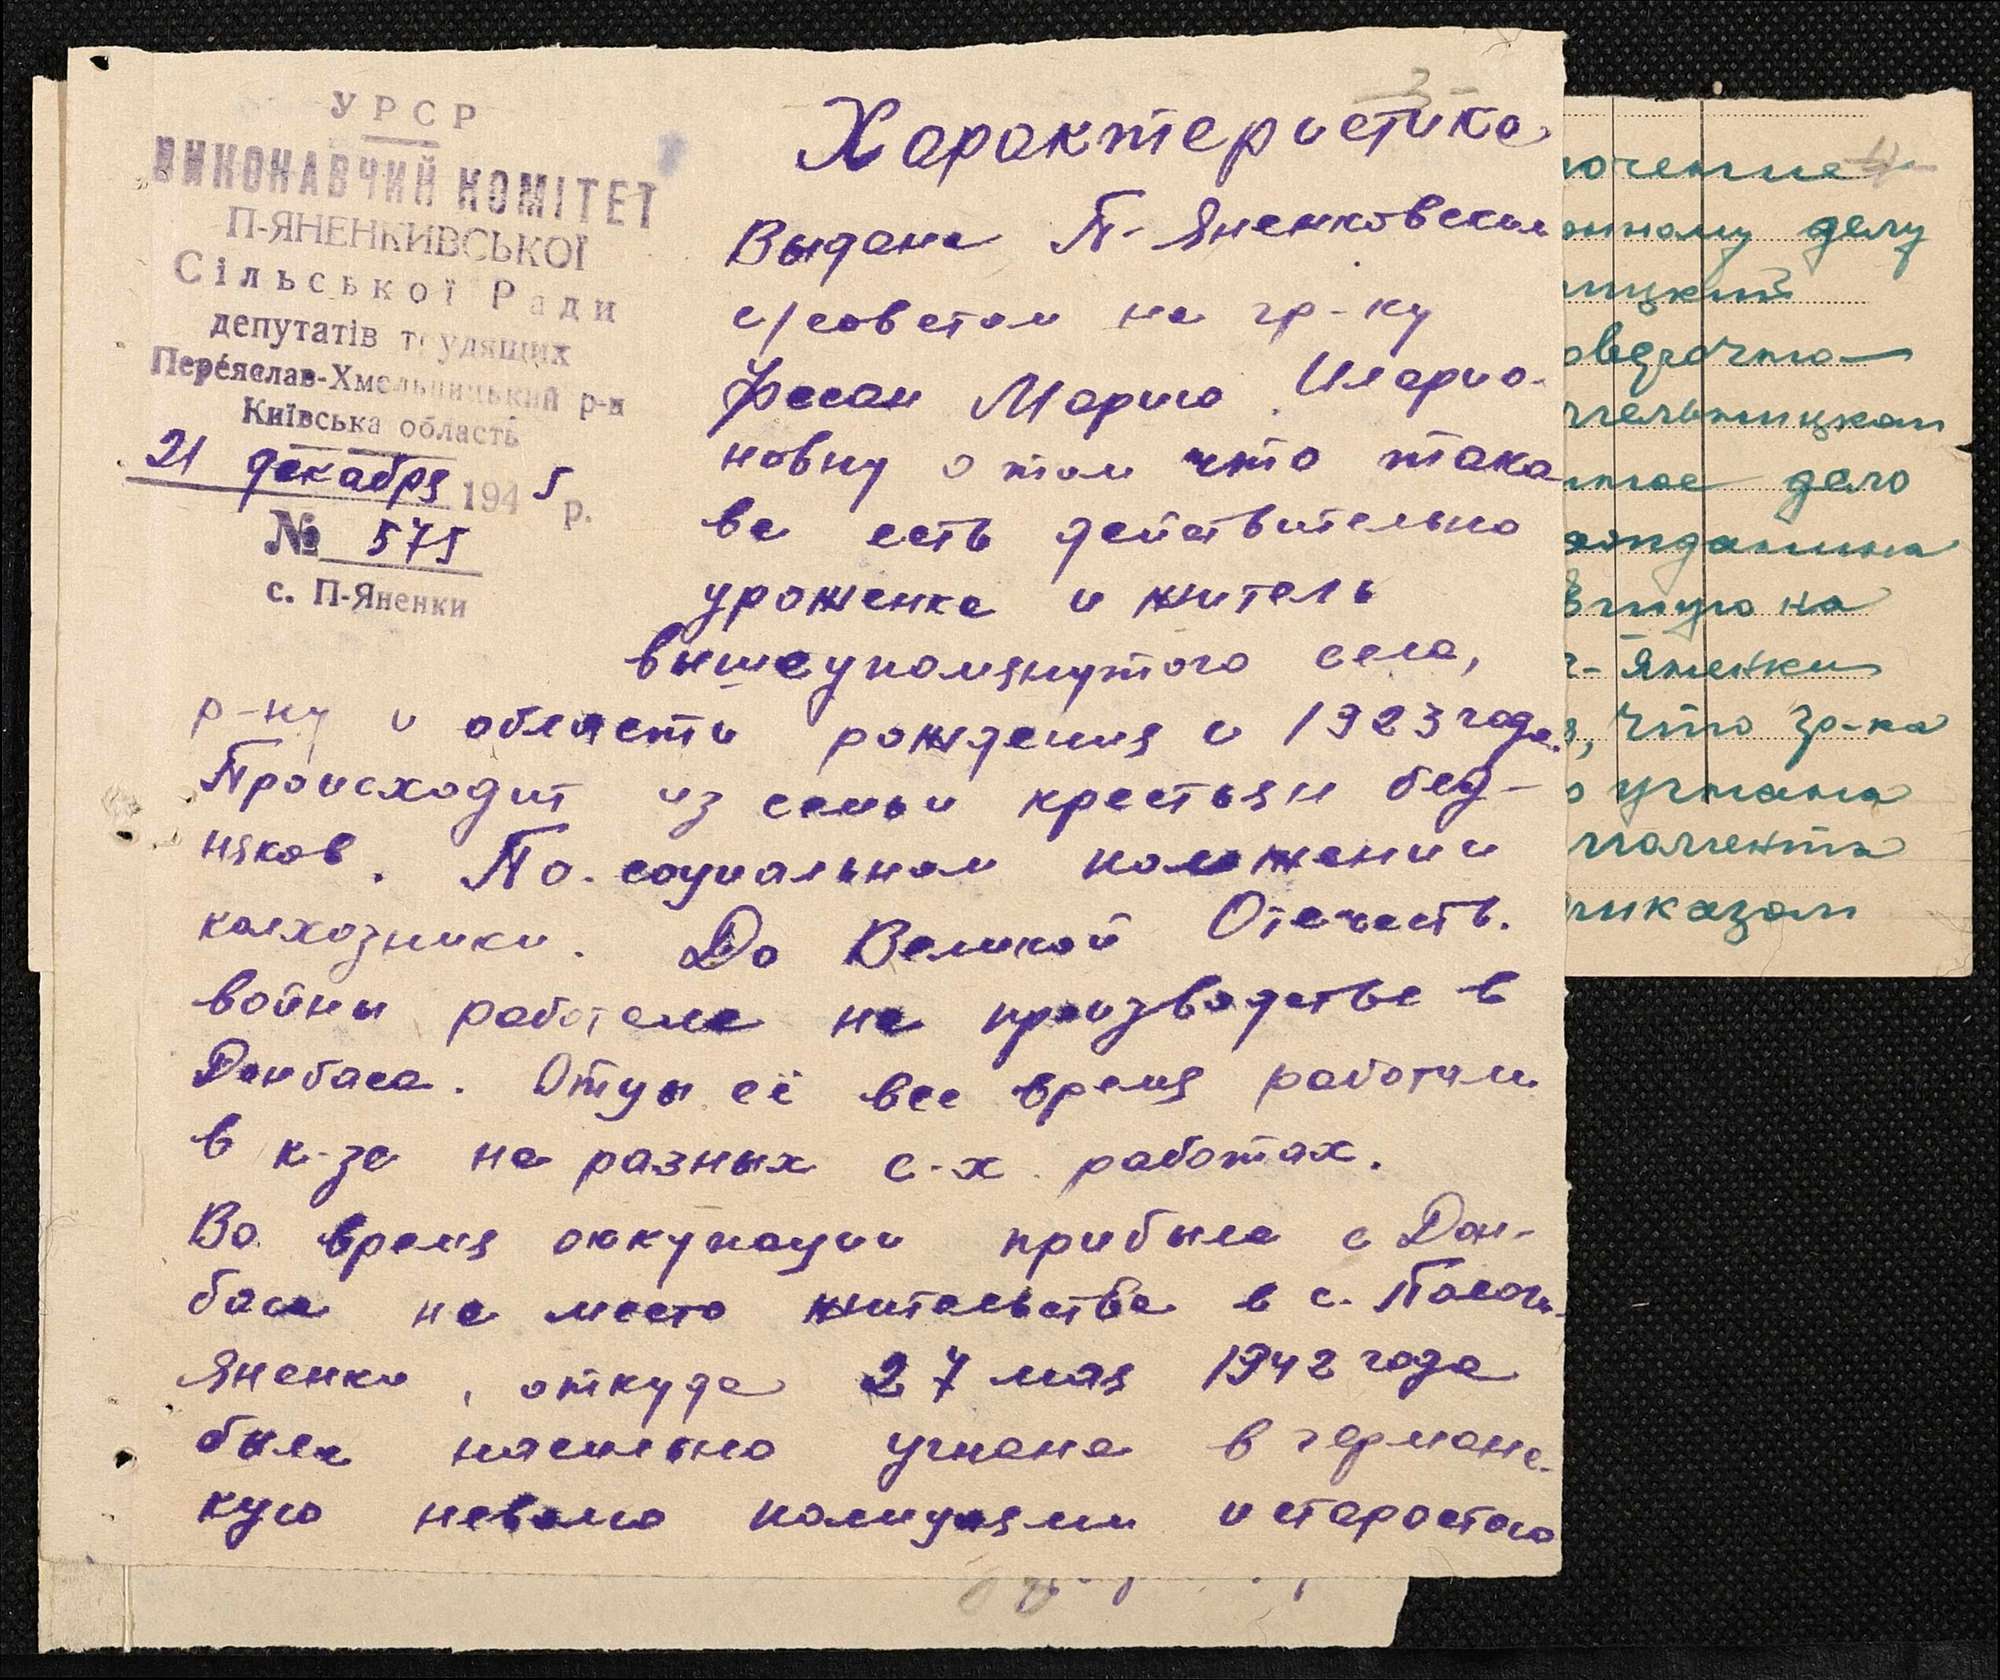 УРСР
ВИКОНАВЧИЙ КОМІТЕТ
П-ЯНЕНКИВСЬКОЇ
Сільської Ради
депутатів трудящих
Переяслав-Хмельницький р-н
Київська область
21 декабря 1945 р.
№ 575
с. П-Яненки
3
Характеристика
Выдана П-Яненковским
с/советом на гр-ку
Фесан Марию Иларио-
новну о том что тако
ва есть действительно
уроженка и житель
вышеупомянутого села,
р-ну и области рождения и 1923 года.
Происходит из семьи крестьян бед-
няков. По социальном положении
колхозники. До Великой Отечеств.
войны работала на производстве в
Донбаса. Отцы её все время работали
в к-зе на разных с-х работах.
Во время оккупации прибыла с Дон-
баса на место жительства в с. Полог-
Яненки, откуда 27 мая 1942 года
была насильно угнана в германс-
кую неволю полицаями и старостою
очение
нному делу
ицкий
оверочно
мельницком
нное дело
ажданина
вшую на
г-Яненки
, что гр-ка
о угнана
момента
риказом